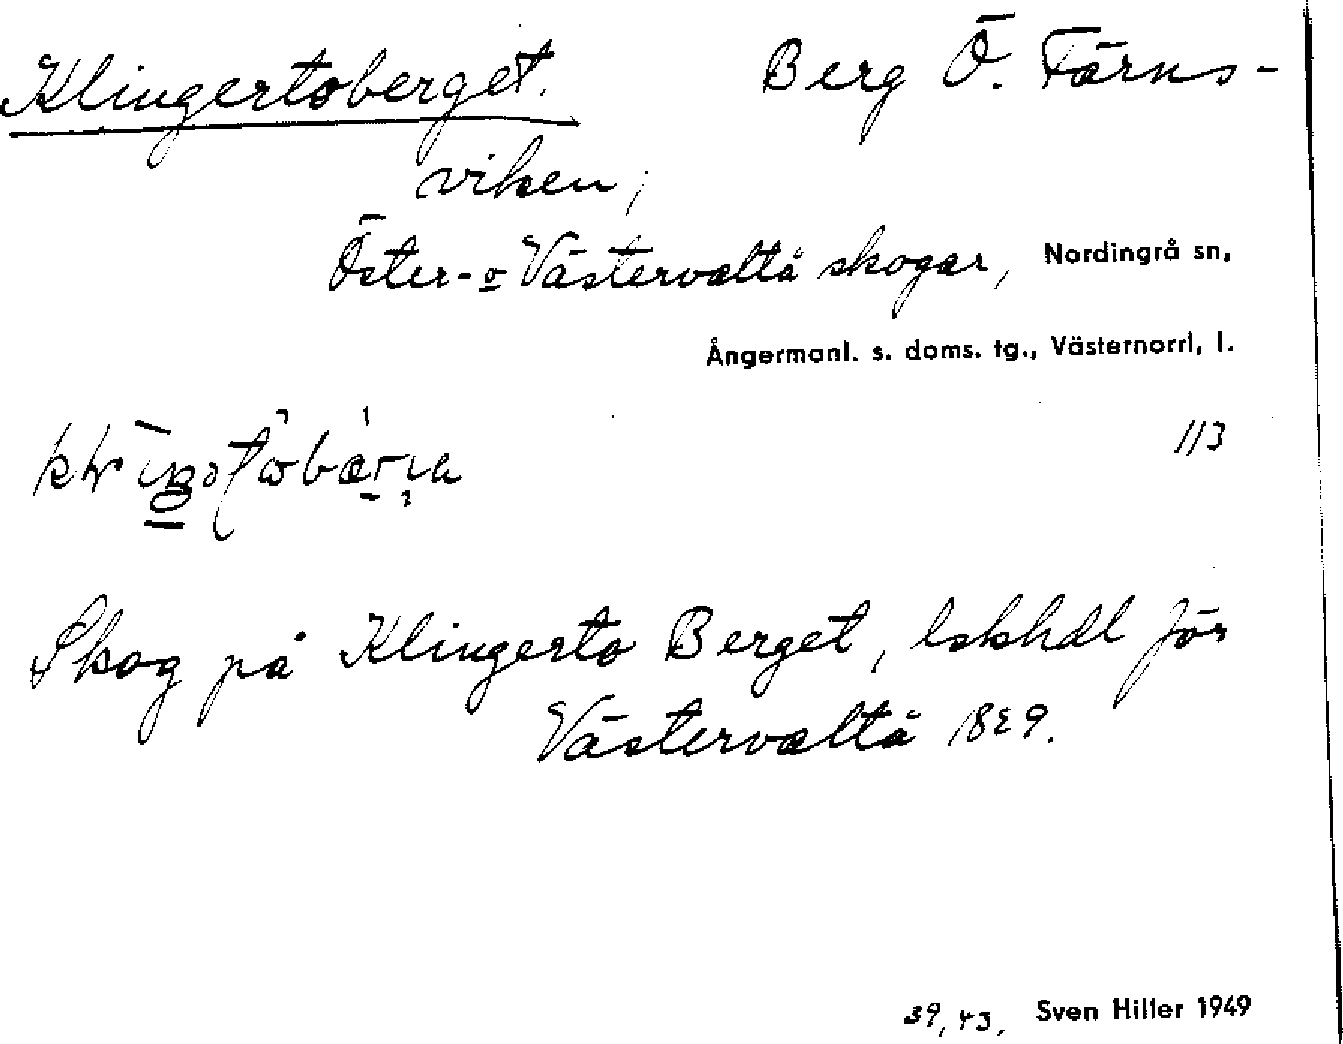 Klingertoberget. Berg Ö. Färns-
viken,
Öster- o Västervaltå skogar, Nordingrå sn,
Ångermanl. s. doms. tg., Västernorrl, l.
113
Skog på Klingerto Berget, lskhdl för
Västervaltå 1829.
39, 43, Sven Hiller 1949